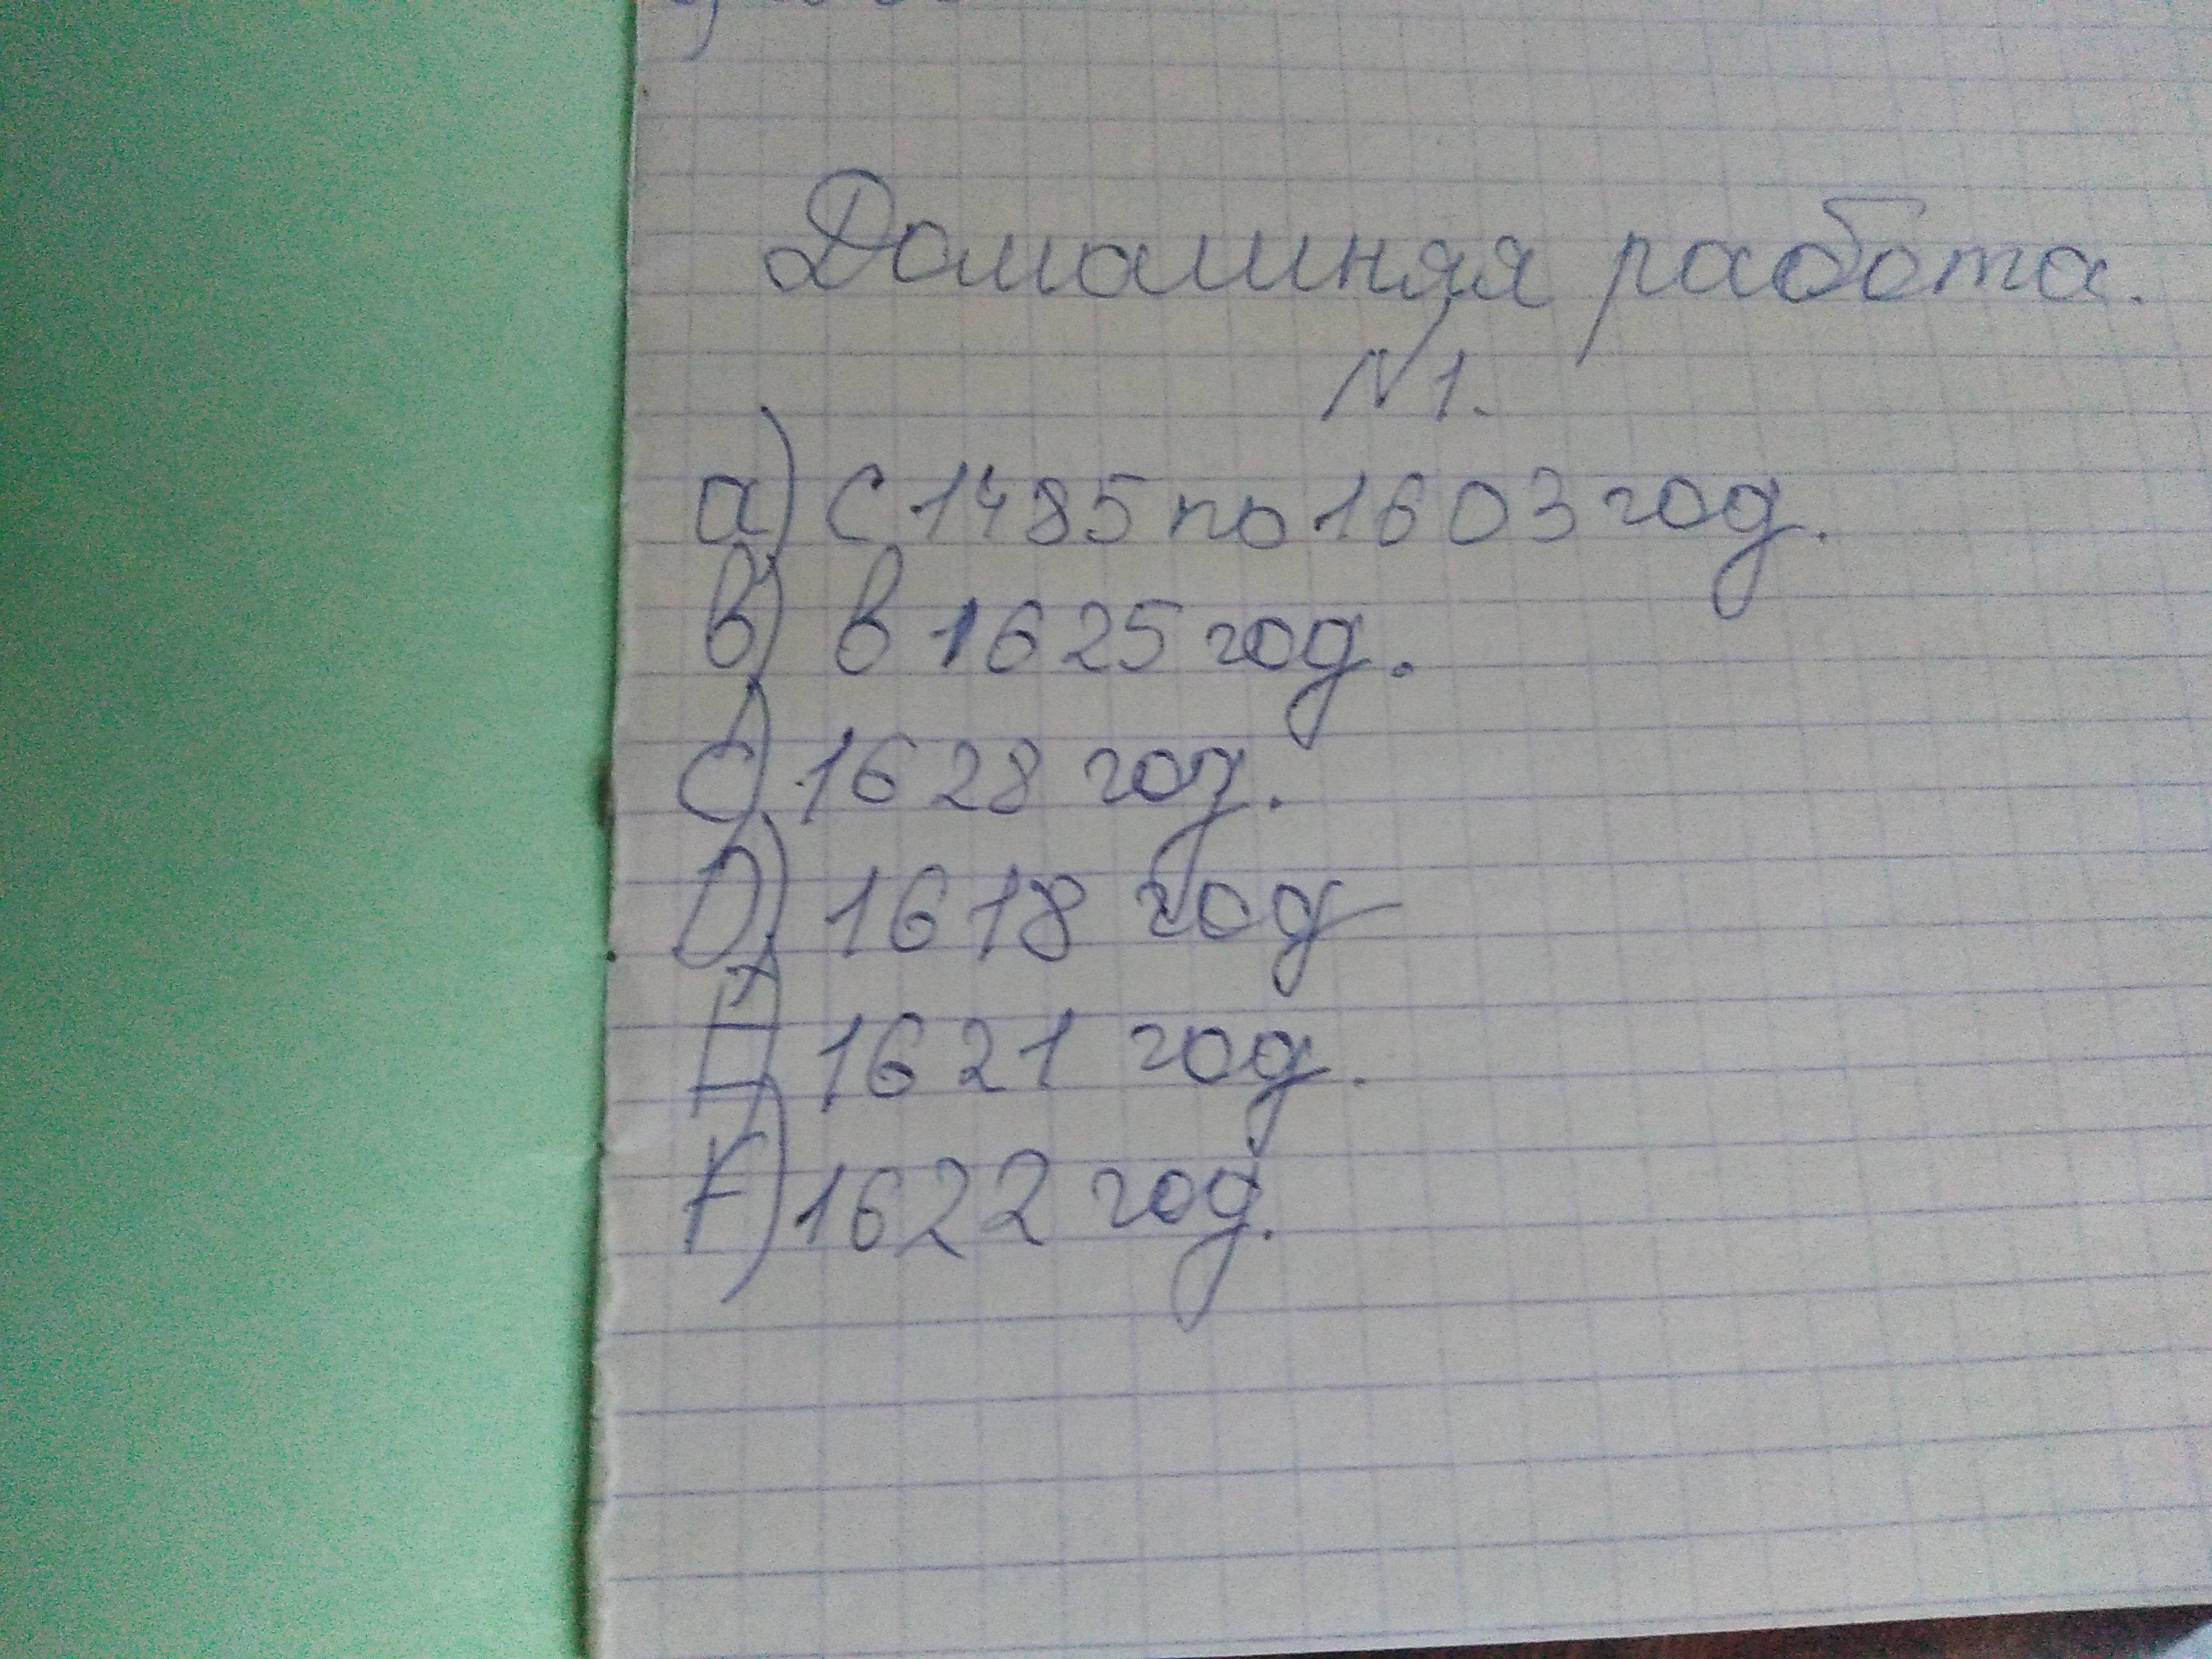 Домашняя работа.
№1.
a) С 1485 по 1603 год.
b) в 1625 год.
c) 1628 год.
D) 1618 год
E) 1621 год.
F) 1622 год.